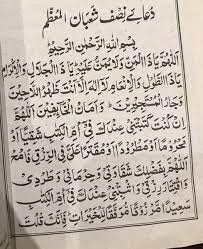 دعائے نصف شعبان المعظم
بِسْمِ اللهِ الرَّحْمٰنِ الرَّحِيْمِ
اَللّٰهُمَّ يَا ذَا الْمَنِّ وَلَا يُمَنُّ عَلَيْهِ يَا ذَا الْجَلَالِ وَالْاِكْرَامِ
يَا ذَا الطَّوْلِ وَالْاِنْعَامِ لَا اِلٰهَ اِلَّا اَنْتَ ظَهْرُ اللَّاجِيْنَ
وَجَارُ الْمُسْتَجِيْرِيْنَ وَاَمَانُ الْخَائِفِيْنَ اَللّٰهُمَّ
اِنْ كُنْتَ كَتَبْتَنِيْ عِنْدَكَ فِيْ اُمِّ الْكِتَابِ شَقِيًّا اَوْ
مَحْرُوْمًا اَوْ مَطْرُوْدًا اَوْ مُقَتَّرًا عَلَيَّ فِي الرِّزْقِ فَامْحُ
اَللّٰهُمَّ بِفَضْلِكَ شَقَاوَتِيْ وَحِرْمَانِيْ وَطَرْدِيْ
وَاقْتِتَارَ رِزْقِيْ وَاَثْبِتْنِيْ عِنْدَكَ فِيْ اُمِّ الْكِتَابِ
سَعِيْدًا مَّرْزُوْقًا مُّوَفَّقًا لِلْخَيْرَاتِ فَاِنَّكَ قُلْتَ